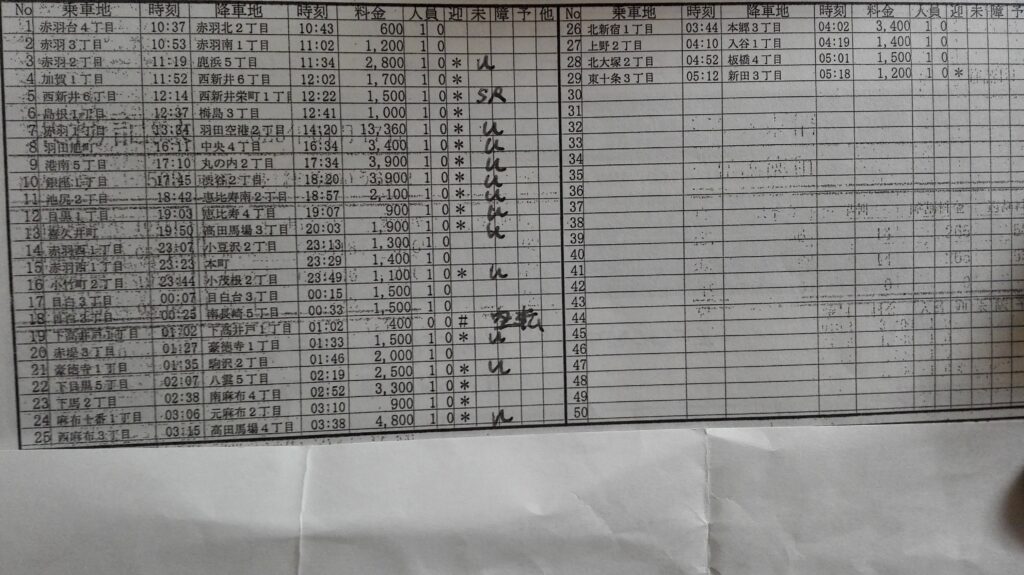 No 乗車地 時刻 降車地 時刻 料金 人員 迎 未 障 予 他
1 赤羽台4丁目 10:37 赤羽北2丁目 10:43 600 1 0
2 赤羽3丁目 10:53 赤羽南1丁目 11:02 1,200 1 0
3 赤羽2丁目 11:19 鹿浜5丁目 11:34 2,800 1 0 * u
4 加賀1丁目 11:52 西新井6丁目 12:02 1,700 1 0 *
5 西新井6丁目 12:14 西新井栄町1丁目 12:22 1,500 1 0 * SR
6 島根1丁目 12:37 梅島3丁目 12:41 1,000 1 0 *
7 赤羽1丁目 13:34 羽田空港2丁目 14:20 13,360 1 0 * u
8 羽田旭町 16:11 中央4丁目 16:34 3,400 1 0 * u
9 港南5丁目 17:10 丸の内2丁目 17:34 3,900 1 0 * u
10 銀座1丁目 17:45 渋谷2丁目 18:20 3,900 1 0 * u
11 池尻2丁目 18:42 恵比寿南2丁目 18:57 2,100 1 0 * u
12 目黒1丁目 19:03 恵比寿4丁目 19:07 900 1 0 * u
13 喜久井町 19:50 高田馬場3丁目 20:03 1,900 1 0 * u
14 赤羽西1丁目 23:07 小豆沢2丁目 23:13 1,300 1 0
15 赤羽西1丁目 23:23 本町 23:29 1,400 1 0
16 小竹町2丁目 23:44 小茂根2丁目 23:49 1,100 1 0 * u
17 目白3丁目 00:07 目白台3丁目 00:15 1,500 1 0
18 目白4丁目 00:25 南長崎5丁目 00:33 1,500 1 0
19 下高井戸1丁目 01:02 下高井戸1丁目 01:02 400 0 0 # 空転
20 赤堤3丁目 01:27 豪徳寺1丁目 01:33 1,500 1 0 * u
21 豪徳寺1丁目 01:35 駒沢2丁目 01:46 2,000 1 0
22 下目黒5丁目 02:07 八雲5丁目 02:19 2,500 1 0 * u
23 下馬2丁目 02:38 南麻布4丁目 02:52 3,300 1 0 *
24 麻布十番1丁目 03:06 元麻布2丁目 03:10 900 1 0 *
25 西麻布3丁目 03:15 高田馬場4丁目 03:38 4,800 1 0 * u
No 乗車地 時刻 降車地 時刻 料金 人員 迎 未 障 予
26 北新宿1丁目 03:44 本郷3丁目 04:02 3,400 1 0
27 上野2丁目 04:10 入谷1丁目 04:19 1,400 1 0
28 北大塚2丁目 04:52 板橋4丁目 05:01 1,500 1 0
29 東十条3丁目 05:12 新田3丁目 05:18 1,200 1 0 *
30
31
32
33
34
35
36
37
38
39
40
41
42
43
44
45
46
47
48
49
50